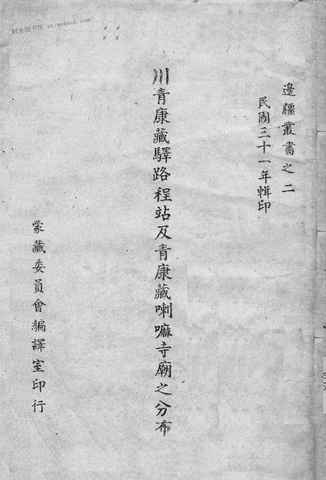 邊疆叢書之二
民國三十一年輯印
川青康藏驛路程站及青康藏喇嘛寺廟之分布
蒙藏委員會編譯室印行